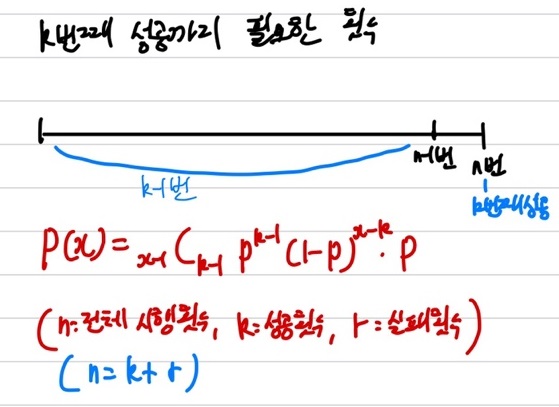 k번째 성공까지 필요한 횟수
n-1번
n번
k-1번
k번째 성공
P(x) = x-1Ck-1 p^k-1 (1-p)^x-k · p
(n=전체 시행횟수, k=성공횟수, r=실패횟수)
(n=k+r)